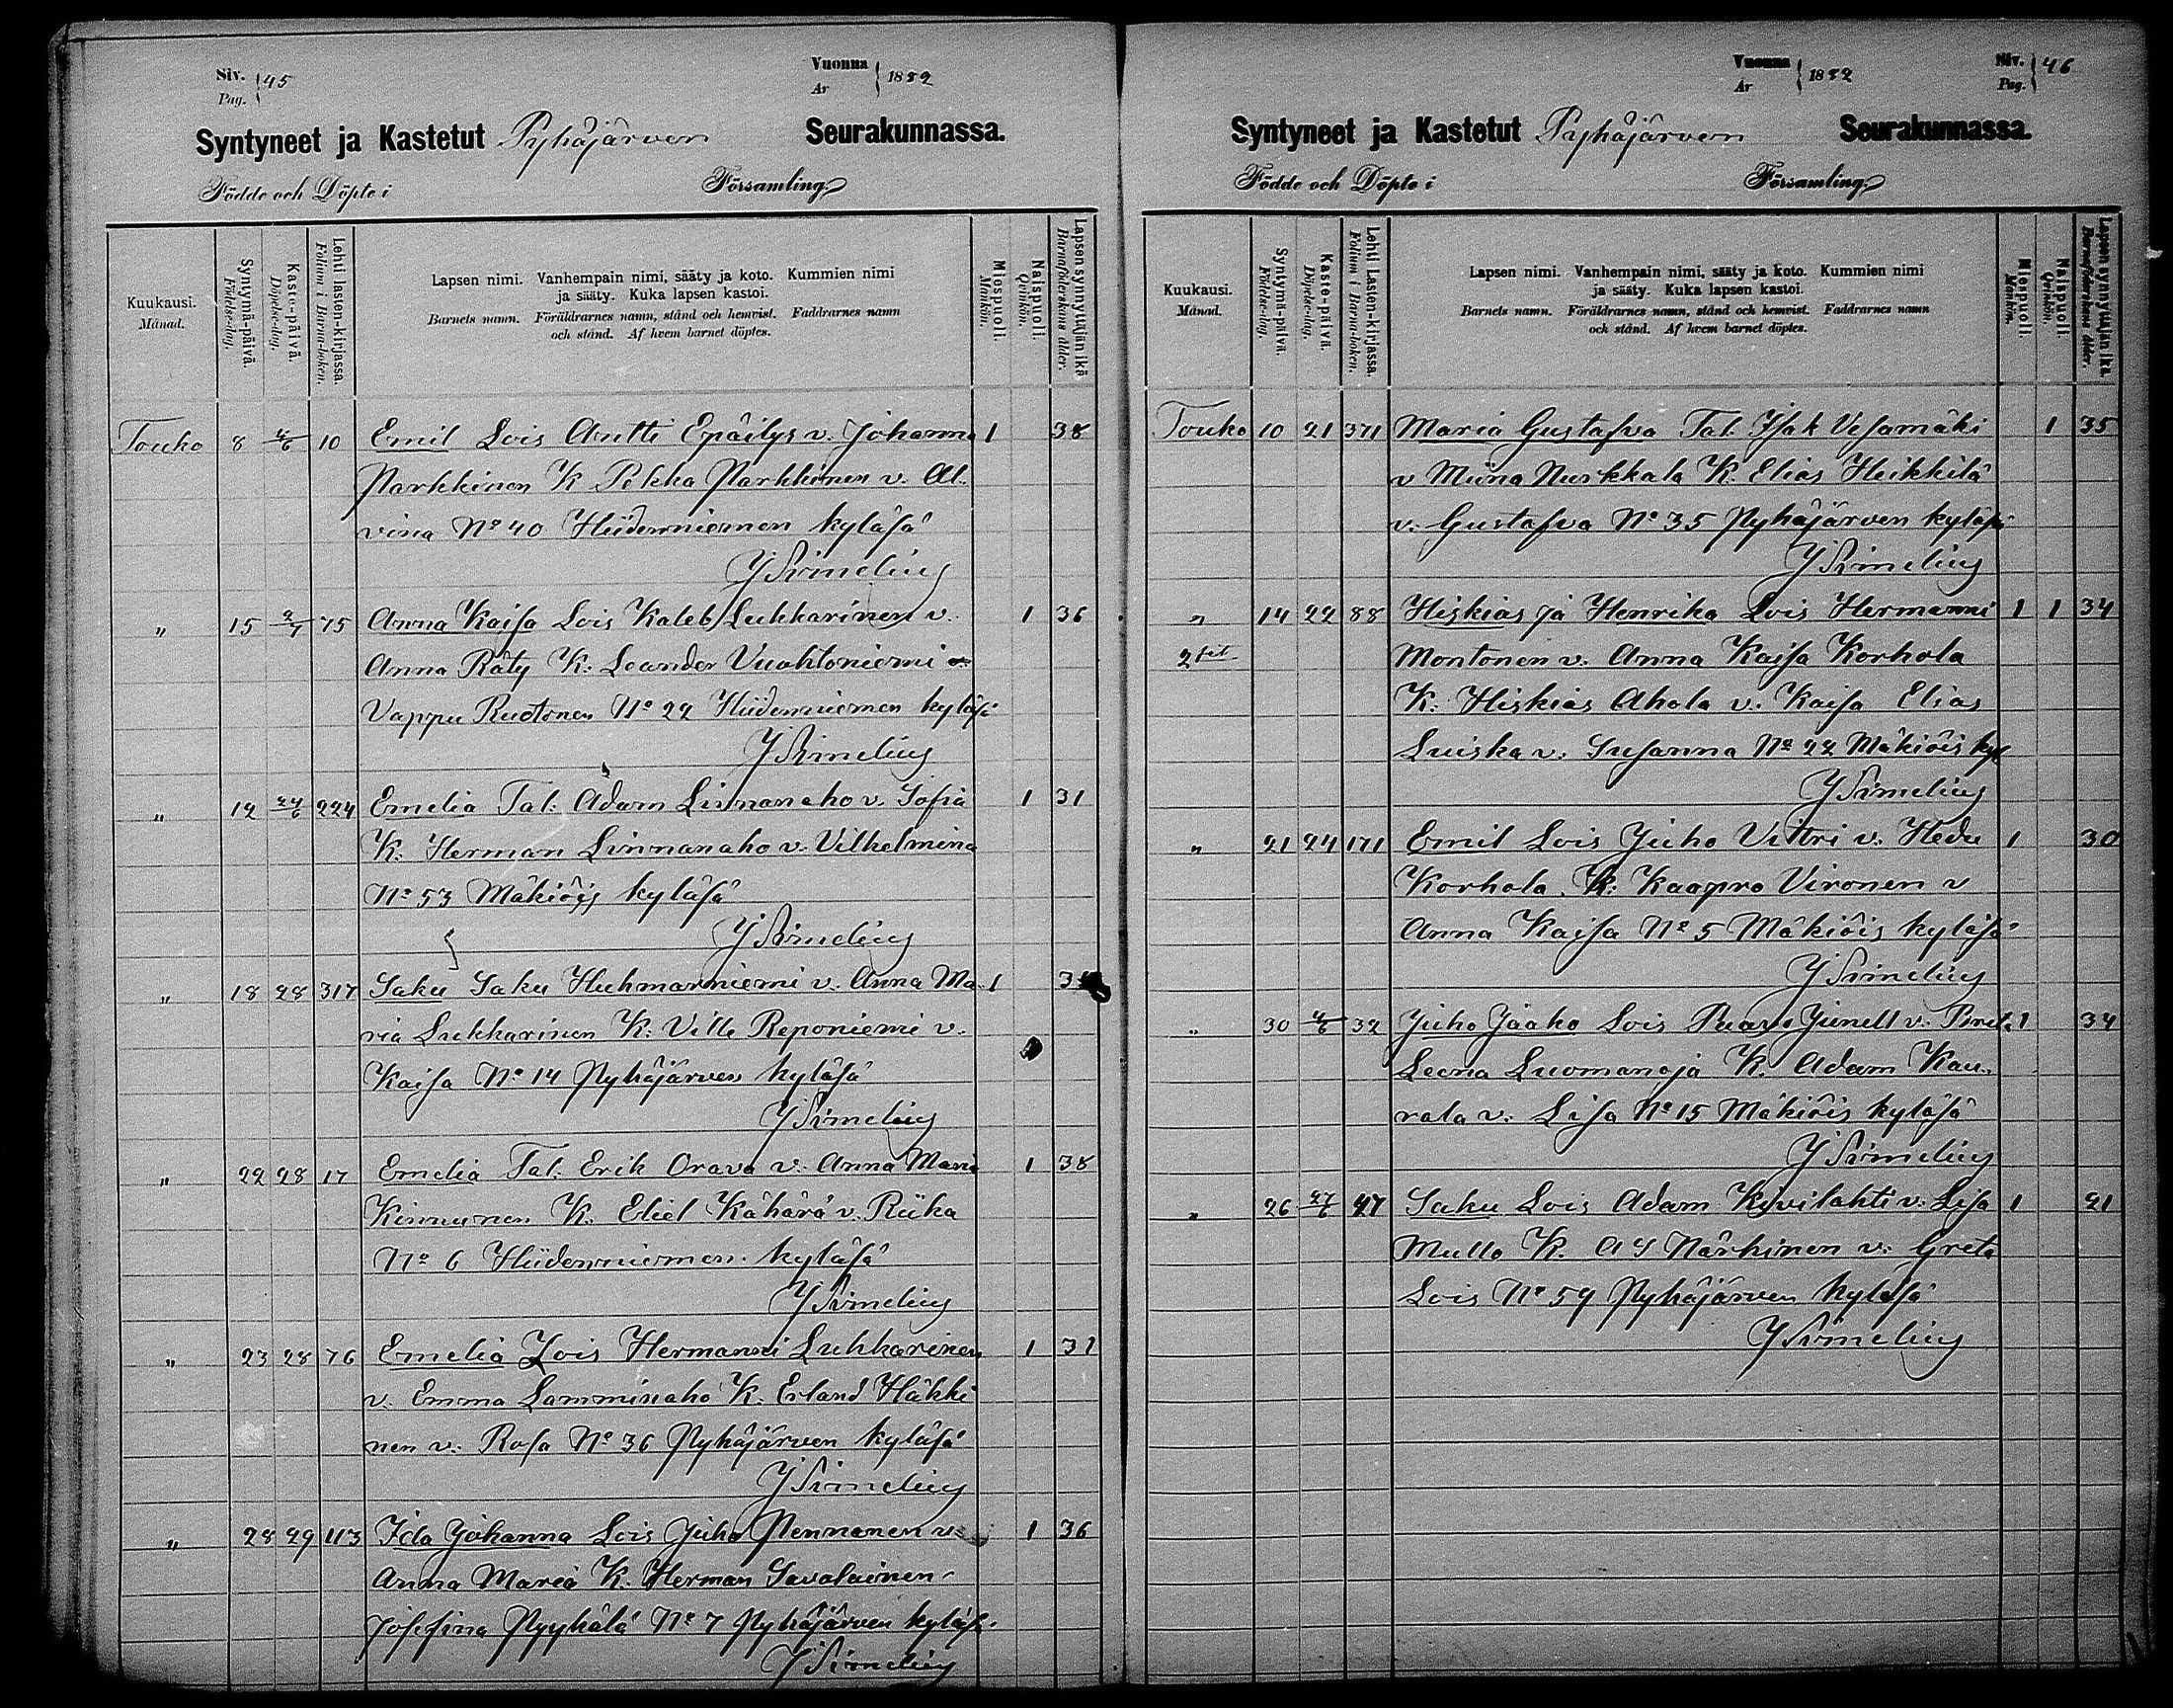 Siv. 45
Pag.
Vuonna 1882
År
Syntyneet ja Kastetut Pyhäjärven Seurakunnassa.
Födde och Döpte i Församling
Kuukausi.
Månad.
Syntymä-päivä.
Födelse-dag.
Kaste-päivä.
Döpelse-dag.
Lehti lasten-kirjassa.
Folium i Barna-boken.
Lapsen nimi. Vanhempain nimi, sääty ja koto. Kummien nimi
ja sääty. Kuka lapsen kastoi.
Barnets namn. Föräldrarnes namn, stånd och hemvist. Faddrarnes namn
och stånd. Af hvem barnet döptes.
Miespuoli.
Mankön.
Naispuoli.
Qvinkön.
Lapsen synnyttäjän ikä
Barnaföderskans ålder.
Touko 8 4/6 10 Emil Lois Antti Epäilys v. Johanna 1 38
Parkkinen K Pekka Parkkinen v. Al.
vina No 40 Hiidenniemen kyläsä
" 15 2/7 75 Anna Kaisa Lois Kaleb Lukkarinen v. 1 36
Anna Räty K: Leander Vuohtoniemi
Vappu Ruotonen No 22 Hiidenniemen kyläsä
" 12 24/6 224 Emelia Tal: Adam Linnanaho v. Sofia 1 31
K: Herman Linnanaho v: Vilhelmina
No 53 Mäkiöis kyläsä
" 18 28 317 Saku Saku Huhmarniemi v. Anna Ma- 1
ria Lukkarinen K: Ville Reponiemi v.
Kaisa No 14 Pyhäjärven kyläsä
" 22 28 17 Emelia Tal. Erik Orava v. Anna Maria 1 38
Kinnunen K. Eliel Kähärä v. Riika
No 6 Hiidenniemen kyläsä
" 23 28 76 Emelia Lois Hermanni Lukkarinen 1 31
v. Emma Lamminaho K. Erland Häkki
nen v. Rosa No 36 Pyhäjärven kyläsä
" 28 29 113 Ida Johanna Lois Juho Pennanen v. 1 36
Anna Maria K. Herman Savolainen
Josefina Pyyhälä No 7 Pyhäjärven kyläsä
Vuonna 1882
År
Siv. 46
Pag.
Syntyneet ja Kastetut Pyhäjärven Seurakunnassa.
Födde och Döpte i Församling
Kuukausi.
Månad.
Syntymä-päivä.
Födelse-dag.
Kaste-päivä.
Döpelse-dag.
Lehti Lasten-kirjassa.
Folium i Barna-boken.
Lapsen nimi. Vanhempain nimi, sääty ja koto. Kummien nimi
ja sääty. Kuka lapsen kastoi.
Barnets namn. Föräldrarnes namn, stånd och hemvist. Faddrarnes namn
och stånd. Af hvem barnet döptes.
Miespuoli.
Mankön.
Naispuoli.
Qvinkön.
Lapsen synnyttäjän ikä.
Barnaföderskans ålder.
Touko 10 21 371 Maria Gustafva Tal. Isak Vesamäki 1 35
v Miina Nurkkala K. Elias Heikkilä
v: Gustafva No 35 Pyhäjärven kyläsä
" 14 22 88 Hiskias ja Henrika Lois Hermanni 1 1 34
Montonen v. Anna Kaisa Korhola
K: Hiskias Ahola v. Kaisa Elias
Luiska v: Susanna No 22 Mäkiöis kyl
" 21 24 171 Emil Lois Juho Vittri v: Hedu 1 30
Korhola. K: Kaapro Vironen v
Anna Kaisa No 5 Mäkiöis kyläsä
" 30 4/6 32 Juho Jaako Lois Paavo Junell v. Brita 1 34
Leena Luomanoja K. Adam Kau-
rala v: Lisa No 15 Mäkiöis kyläsä
" 26 27/6 47 Saku Lois Adam Kivilahti v: Lisa 1 21
Mullo K. A S Närhinen v: Greta
Lois No 59 Pyhäjärven kyläsä